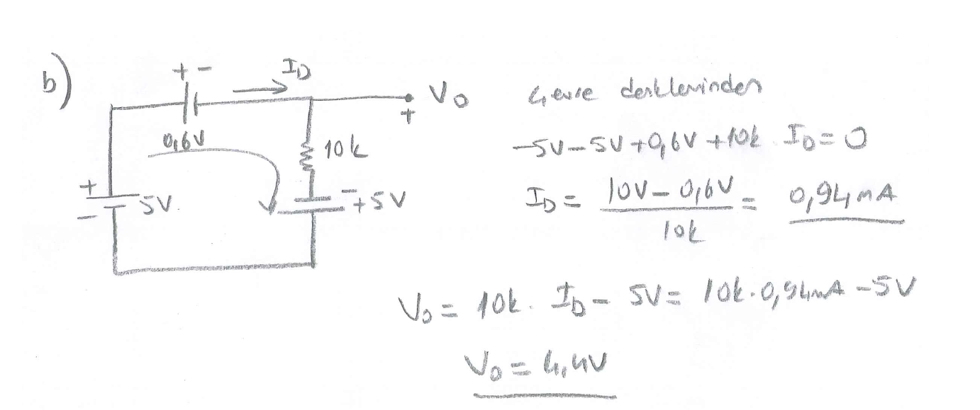 b)
+ -
I_D
V₀
+
0,6V
10k
+
-
5V
-
+5V
Çevre denkleminden
-5V-5V+0,6V+10k I_D=0
I_D = 10V-0,6V / 10k = 0,94mA
V₀ = 10k. I_D - 5V = 10k.0,94mA -5V
V₀ = 4,4V